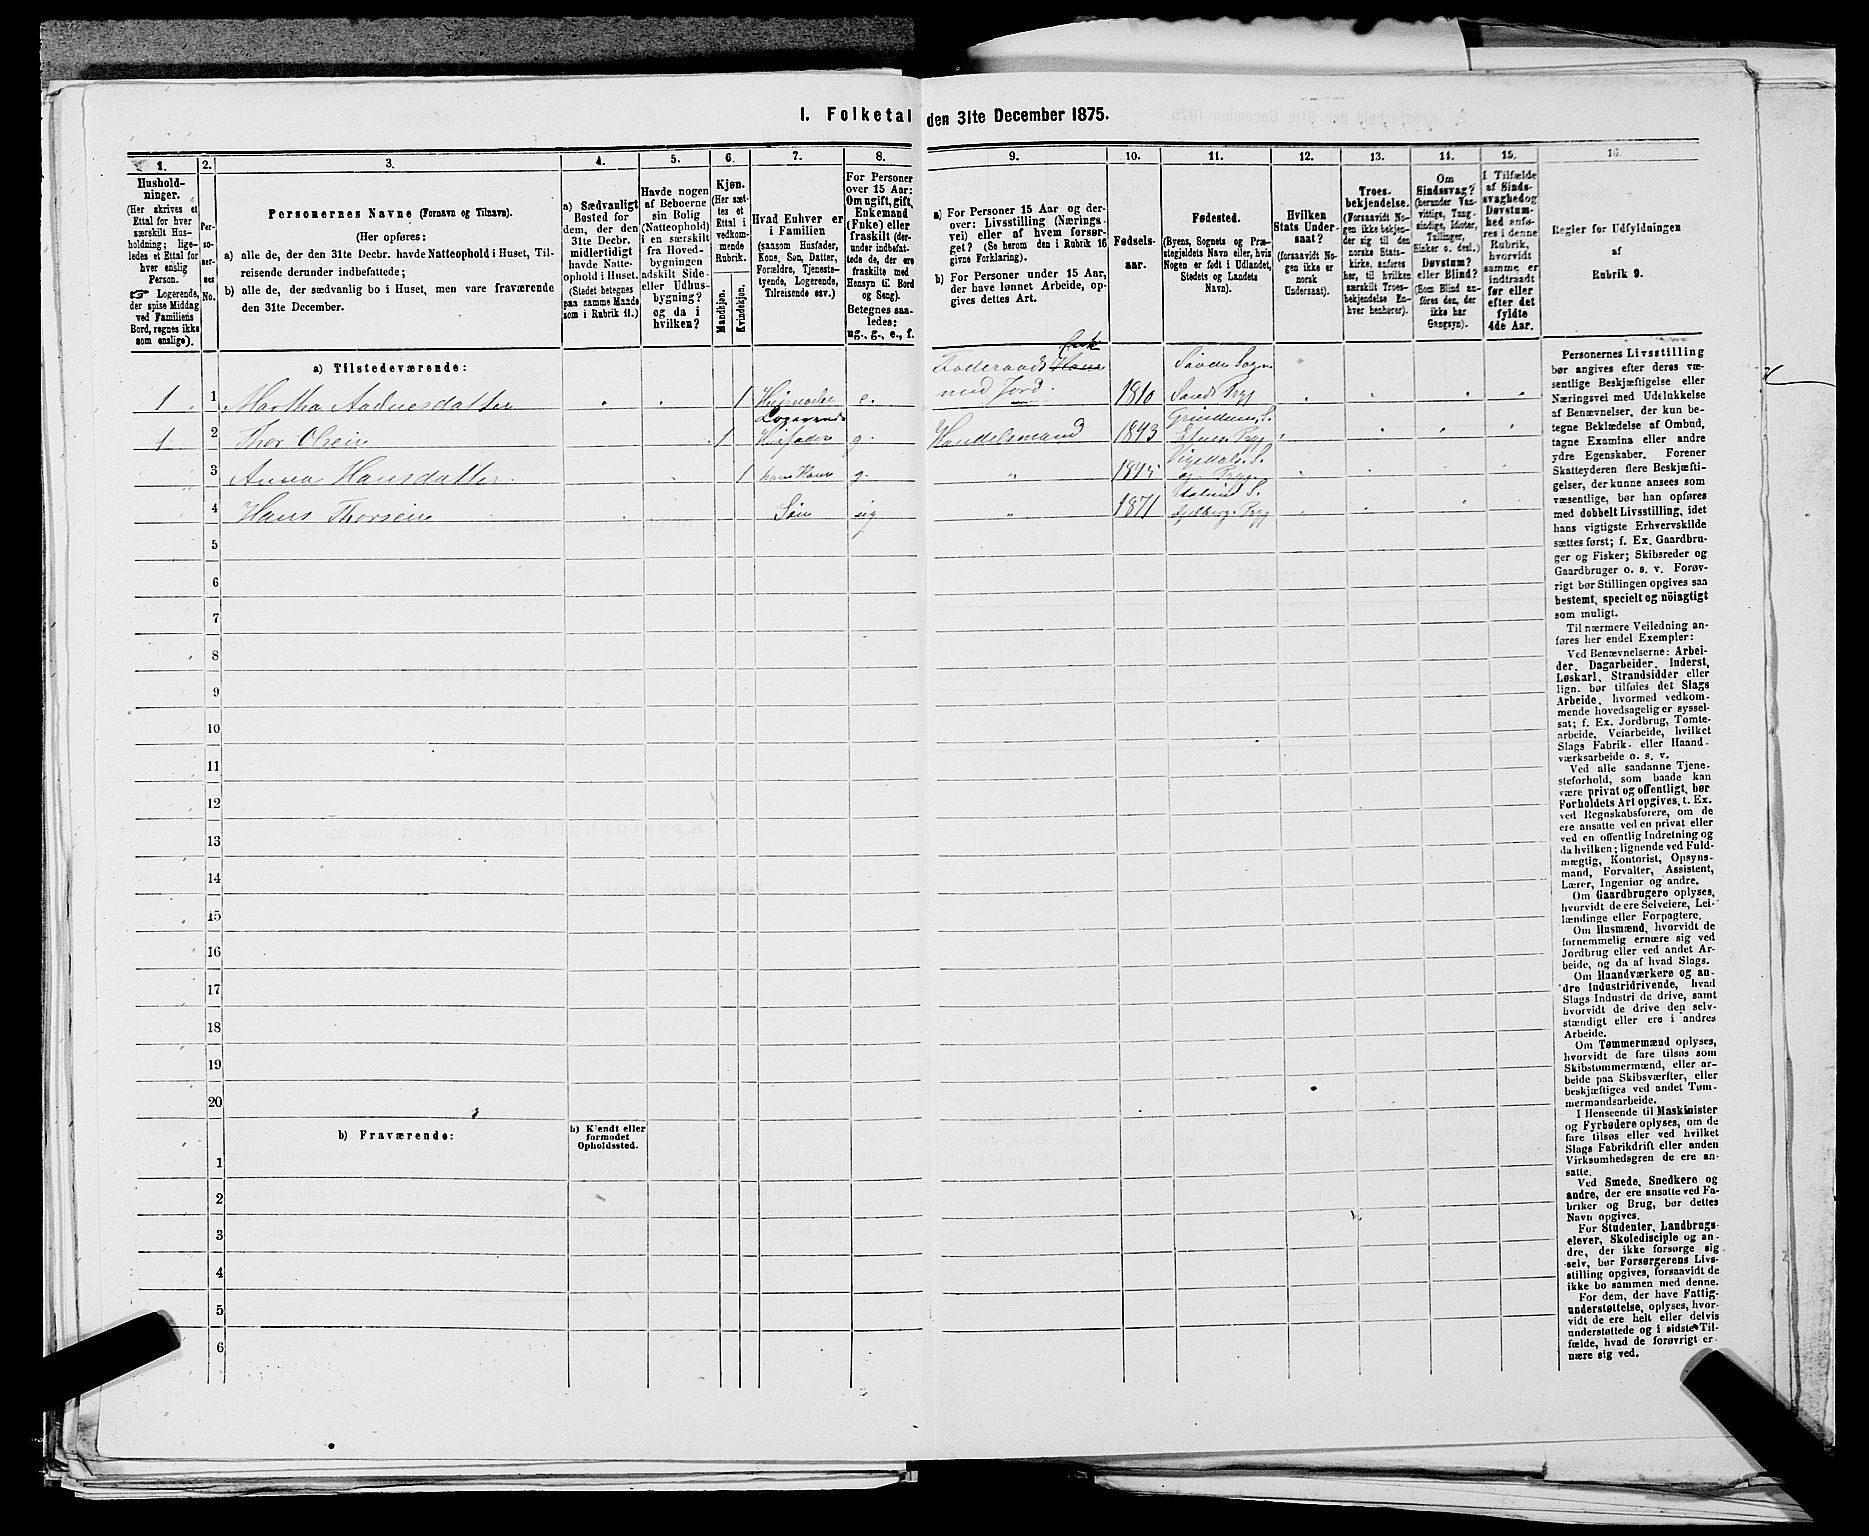 I. Folketal den 31te December 1875.
1. 2. 3. 4. 5. 6. 7. 8. 9. 10. 11. 12. 13. 14. 15. 16.
Hushold-
ninger.
(Her skrives et
Ettal for hver
særskilt Hus-
holdning; lige-
ledes et Ettal for
hver enslig
Person.
☞ Logerende,
der spise Middag
ved Familiens
Bord, regnes ikke
som enslige).
Per-
so-
ner-
nes
No.
Personernes Navne (Fornavn og Tilnavn).
(Her opføres:
a) alle de, der den 31te Decbr. havde Natteophold i Huset, Til-
reisende derunder indbefattede;
b) alle de, der sædvanlig bo i Huset, men vare fraværende
den 31te December.
a) Sædvanligt
Bosted for
dem, der den
31te Decbr.
midlertidigt
havde Natte-
ophold i Huset.
(Stedet betegnes
paa samme Maade
som i Rubrik 11.)
Havde nogen
af Beboerne
sin Bolig
(Natteophold)
i en særskilt
fra Hoved-
bygningen
adskilt Side-
eller Udhus-
bygning?
og da i
hvilken?
Kjøn.
(Her sæt-
tes et
Ettal i
vedkom-
mende
Rubrik.
Mandkjøn.
Kvindekjøn.
Hvad Enhver er
i Familien
(saasom Husfader,
Kone, Søn, Datter,
Forældre, Tjeneste-
tyende, Logerende,
Tilreisende osv.)
For Personer
over 15 Aar:
Om ugift, gift,
Enkemand
(Enke) eller
fraskilt (der-
under indbefat-
tede de, der ere
fraskilte med
Hensyn til Bord
og Seng).
Betegnes saa-
ledes:
ug., g., e., f.
a) For Personer 15 Aar og der-
over: Livsstilling (Nærings-
vei) eller af hvem forsør-
get? (Se herom den i Rubrik 16
givne Forklaring).
b) For Personer under 15 Aar,
der have lønnet Arbeide, op-
gives dettes Art.
Fødsels-
aar.
Fødested.
(Byens, Sognets og Præ-
stegjeldets Navn eller, hvis
Nogen er født i Udlandet,
Stedets og Landets
Navn).
Hvilken
Stats Under-
saat?
(forsaavidt No-
gen ikke er
norsk
Undersaat).
Troes-
bekjendelse.
(Forsaavidt No-
gen ikke bekjen-
der sig til den
norske Stats-
kirke, anføres
her, til hvilken
særskilt Troes-
bekjendelse En-
hver henhører).
Om
Sindssvag?
(herunder Van-
vittige, Tung-
sindige, Idioter,
Tullinger,
Sinker o. desl.)
Døvstum?
eller Blind?
(Som Blind an-
føres den, der
ikke har
Gangsyn).
I Tilfælde
af Sinds-
svaghed og
Døvstum-
hed anfø-
res i denne
Rubrik,
hvorvidt
samme er
indtraadt
før eller
efter det
fyldte
4de Aar.
Regler for Udfyldningen
af
Rubrik 9.
a) Tilstedeværende:
1 1 Martha Aadnesdatter 1 Husmoder e. Føderaads Enk Kone med Jord. 1810 Sovde Sogn Sands Prgj
1 2 Thor Olsen 1 Logerende Husfader g. Handelsmand 1843 S. Etne Prgj
3 Anna Hansdatter 1 hans Kone g. " 1845 S. og Prgj.
4 Hans Thorsen Søn ug " 1871 S. Prgj
5
6
7
8
9
10
11
12
13
14
15
16
17
18
19
20
b) Fraværende:
b) Kjendt eller
formodet
Opholdssted.
1
2
3
4
5
6
Personernes Livsstilling
bør angives efter deres væ-
sentlige Beskjæftigelse eller
Næringsvei med Udelukkelse
af Benævnelser, der kun be-
tegne Beklædelse af Ombud,
tagne Examina eller andre
ydre Egenskaber. Forener
Skatteyderen flere Beskjæfti-
gelser, der kunne ansees som
væsentlige, bør han opføres
med dobbelt Livsstilling, idet
hans vigtigste Erhvervskilde
sættes først; f. Ex. Gaardbru-
ger og Fisker; Skibsreder og
Gaardbruger o. s. v. Forøv-
rigt bør Stillingen opgives saa
bestemt, specielt og nöiagtigt
som muligt.
Til nærmere Veiledning an-
føres her endel Exempler:
Ved Benævnelserne: Arbei-
der, Dagarbeider, Inderst,
Løskarl, Strandsidder eller
lign. bør tilføies det Slags
Arbeide, hvormed vedkom-
mende hovedsagelig er syssel-
sat; f. Ex. Jordbrug, Tomte-
arbeide, Veiarbeide, hvilket
Slags Fabrik- eller Haand-
værksarbeide o. s. v.
Ved alle saadanne Tjene-
steforhold, som baade kan
være privat og offentligt, bør
Forholdets Art opgives, t. Ex.
ved Regnskabsførere, om de
ere ansatte ved en privat eller
ved en offentlig Indretning og
da hvilken; lignende ved Fuld-
mægtig, Kontorist, Opsyns-
mand, Forvalter, Assistent,
Lærer, Ingeniør og andre.
Om Gaardbrugere oplyses,
hvorvidt de ere Selveiere, Lei-
lændinge eller Forpagtere.
Om Husmænd, hvorvidt de
fornemmelig ernære sig ved
Jordbrug eller ved andet Ar-
beide, og da af hvad Slags.
Om Haandværkere og an-
dre Industridrivende, hvad
Slags Industri de drive, samt
hvorvidt de drive den selv-
stændigt eller ere i andres
Arbeide.
Om Tømmermænd oplyses,
hvorvidt de fare tilsøs som
Skibstømmermænd, eller ar-
beide paa Skibsværfter, eller
beskjæftiges ved andet Tøm-
mermandsarbeide.
I Henseende til Maskinister
og Fyrbødere oplyses, om de
fare tilsøs eller ved hvilket
Slags Fabrikdrift eller anden
Virksomhedsgren de ere an-
satte.
Ved Smede, Snedkere og
andre, der ere ansatte ved Fa-
briker og Brug, bør dettes
Navn opgives.
For Studenter, Landbrugs-
elever, Skoledisciple og an-
dre, der ikke forsørge sig
selv, bør Forsørgerens Livs-
stilling opgives, forsaavidt de
ikke bo sammen med denne.
For dem, der have Fattig-
understøttelse, oplyses, hvor-
vidt de ere helt eller delvis
understøttede og i sidste Til-
fælde, hvad de forøvrigt er-
nære sig ved.